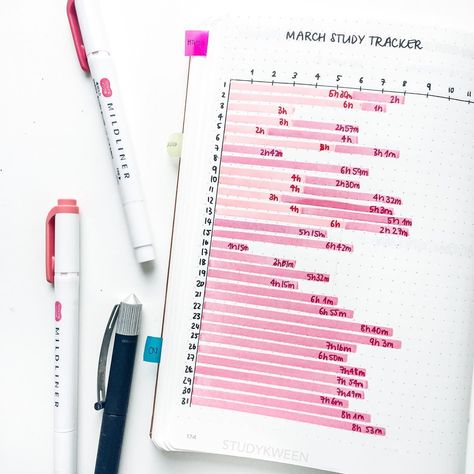 MARCH STUDY TRACKER
1 2 3 4 5 6 7 8 9 10 11
1
2 5h 30m 2h
3 3h 6h 1h
4 3h 2h 57m
5 2h 4h
6 3h 1m
7 2h 42m
8 6h 59m
9 4h 2h 30m
10 4h 4h 32m
12 3h 5h 3m
13 5h 1m
14 6h 2h 23m
15 5h 15m
16 6h 42m
17 1h 15m
18
19 5h 32m
20 4h 15m
21 6h 1m
22 6h 55m
23 8h 40m
24 9h 3m
25 7h 16m
6h 50m
27 7h 48m
28 7h 54m
29 7h 49m
30 7h 6m
8h 1m
31 8h 53m
174
STUDYKWEEN
MILDLINER
MILDLINER